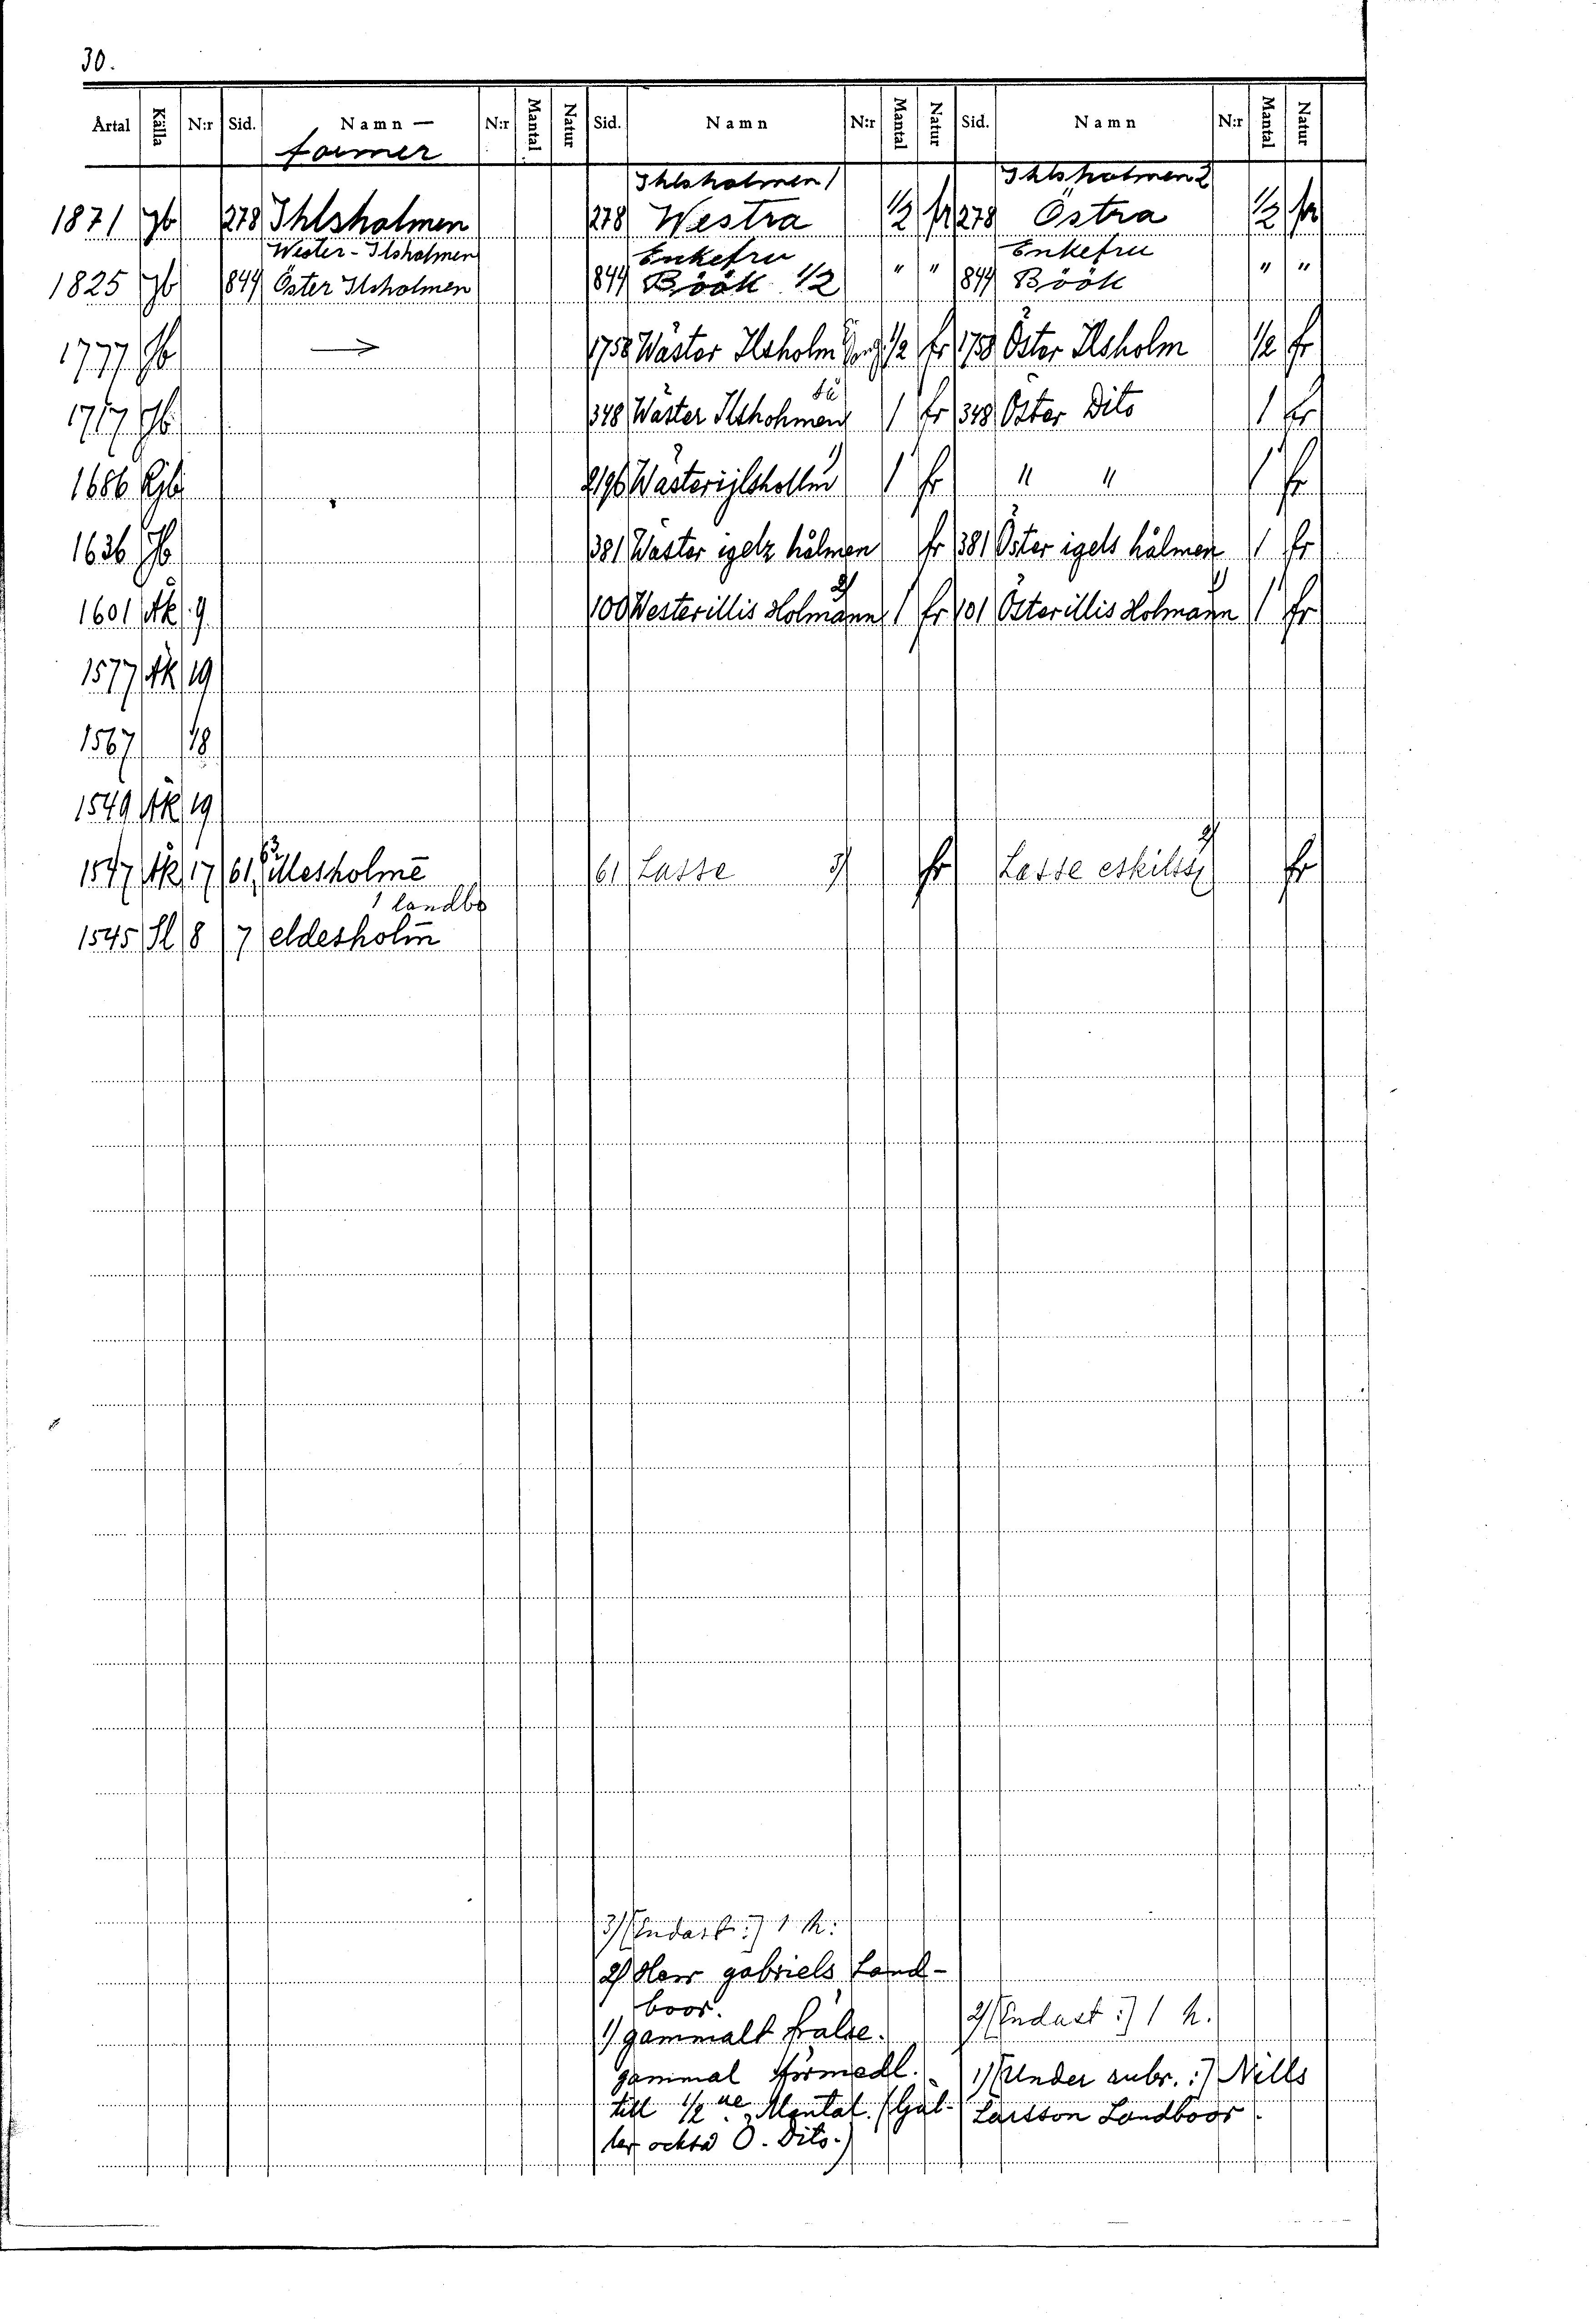 30.
Årtal Källa N:r Sid. Namn — N:r Mantal Natur Sid. Namn N:r Mantal Natur Sid. Namn N:r Mantal Natur
former
Ihlsholmen 1 Ihlsholmen 2
1871 Jb 278 Ihlsholmen 278 Westra 1/2 fr 278 Östra 1/2 fr
Wester-Ilsholmen Enkefru Enkefru
1825 Jb 844 Öster Ilsholmen 844 Böök 1/2 " " 844 Böök " "
1777 Jb → 1758 Wäster Ilsholm 1/2 fr 1758 Öster Ilsholm 1/2 fr
1717 Jb 348 Wäster Ilshohmen 1 fr 348 Öster Dito 1 fr
1686 Rjb 2196 Wästerijlshollm 1) 1 fr " " 1 fr
1636 Jb 381 Wäster igelz hålmen fr 381 Öster igels hålmen 1 fr
1601 Äk 9 100 Westerillis Holmänn 2) 1 fr 101 Österillis Holmänn 1) 1 fr
1577 Äk 19
1567 18
1549 Äk 19
1547 Äk 17 61, 63 illesholmē 61 Lasse 3) fr Lasse eskilss 2) fr
1 landbo
1545 Sl 8 7 eldesholm̄
3) [Endast:] 1 h:
2) Herr gabriels Land-
boor.
2) [Endast:] 1 h.
1) gammalt frälse.
gammal förmedl.
1) [Under rubr.:] Nills
till 1/2 Mantal. (Gäl-
Larsson Landboor.
ler också Ö. Dito.)